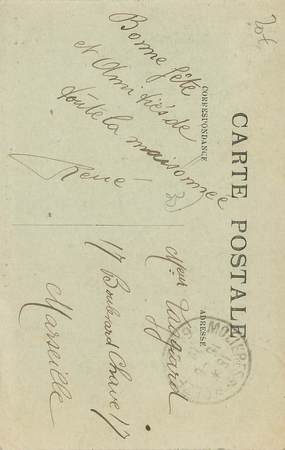 CARTE POSTALE
CORRESPONDANCE
Bonne fête
et Amitiés de
toute la maisonnée
René
ADRESSE
Mr
17 Boulevard Chave 17
Marseille